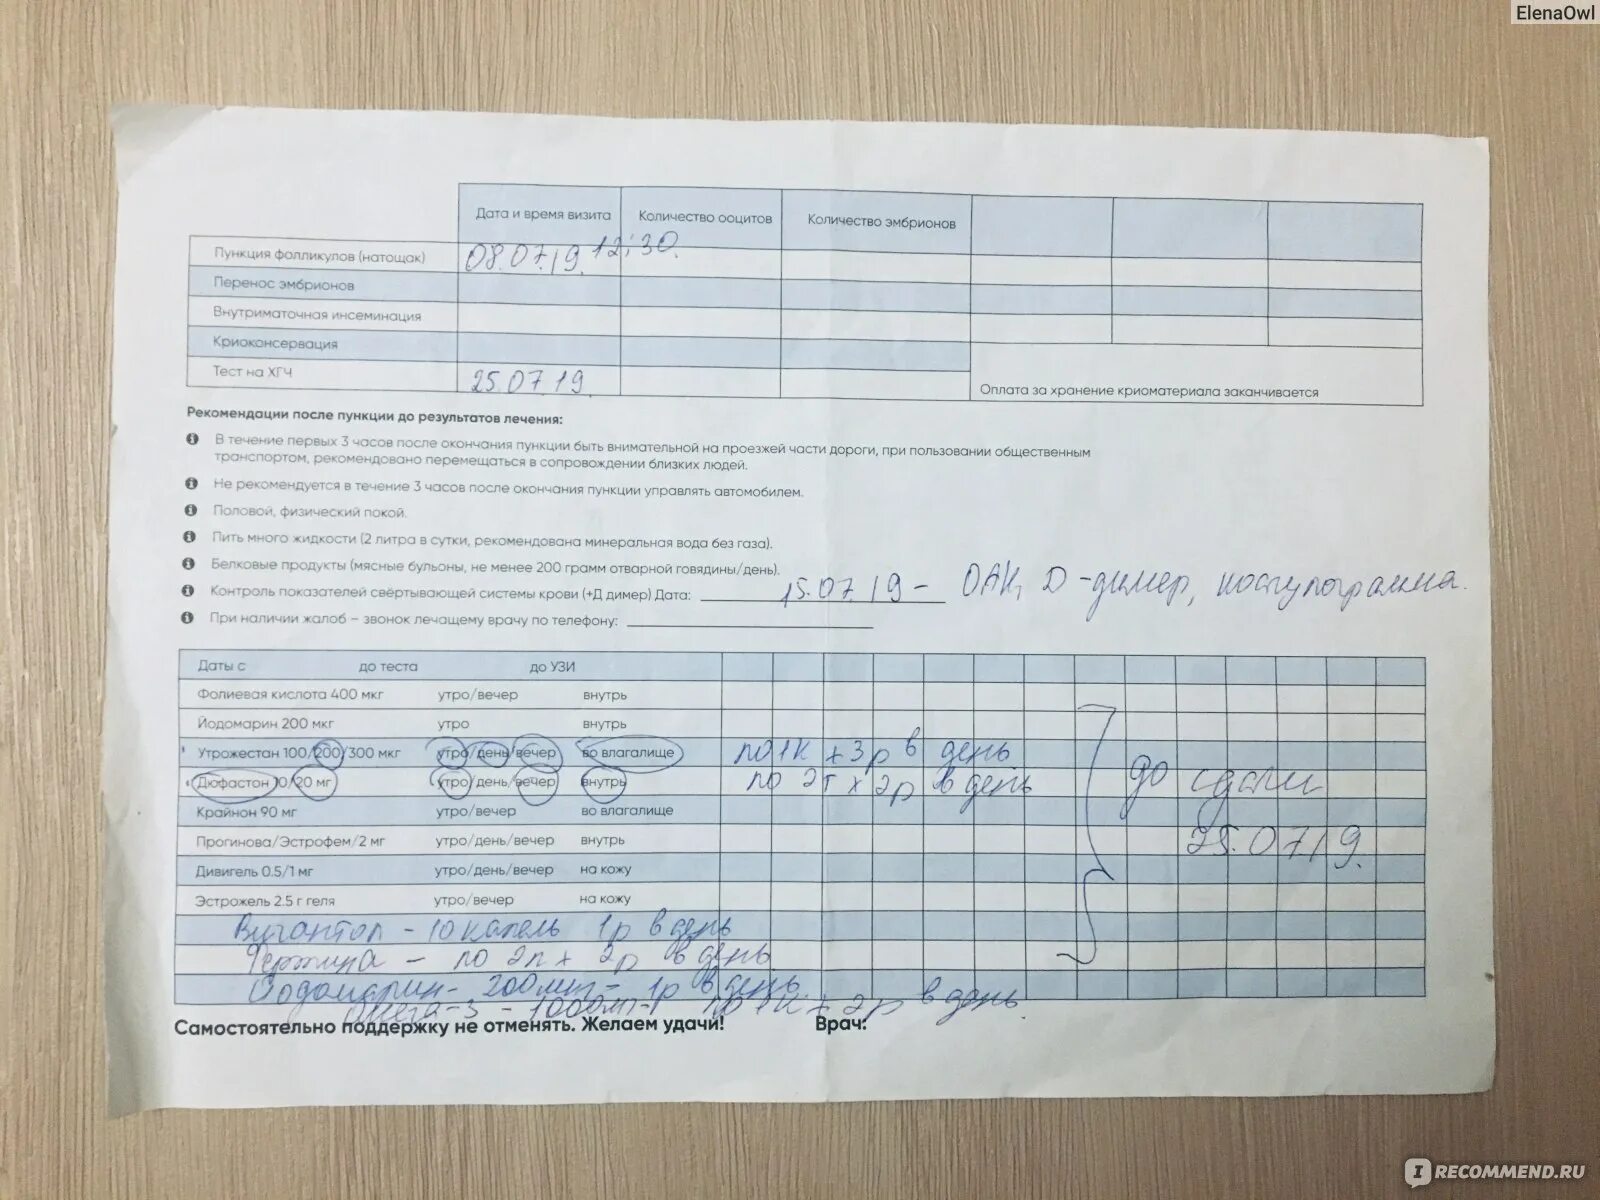 ElenaOwl
Дата и время визита Количество ооцитов Количество эмбрионов
Пункция фолликулов (натощак) 08.07.19. 12:30.
Перенос эмбрионов
Внутриматочная инсеминация
Криоконсервация
Тест на ХГЧ 25.07.19
Оплата за хранение криоматериала заканчивается
Рекомендации после пункции до результатов лечения:
В течение первых 3 часов после окончания пункции быть внимательной на проезжей части дороги, при пользовании общественным
транспортом, рекомендовано перемещаться в сопровождении близких людей.
Не рекомендуется в течение 3 часов после окончания пункции управлять автомобилем.
Половой, физический покой.
Пить много жидкости (2 литра в сутки, рекомендована минеральная вода без газа).
Белковые продукты (мясные бульоны, не менее 200 грамм отварной говядины/день).
Контроль показателей свёртывающей системы крови (+Д димер) Дата: 15.07.19 - ОАК, Д-димер,
При наличии жалоб – звонок лечащему врачу по телефону:
Даты с до теста до УЗИ
Фолиевая кислота 400 мкг утро/вечер внутрь
Йодомарин 200 мкг утро внутрь
Утрожестан 100/200/300 мкг утро/день/вечер во влагалище по 1к х 3р в день
Дюфастон 10/20 мг утро/день/вечер внутрь по 2т х 2р в день до сдачи
Крайнон 90 мг утро/вечер во влагалище
Прогинова/Эстрофем/2 мг утро/день/вечер внутрь 25.07.19.
Дивигель 0.5/1 мг утро/день/вечер на кожу
Эстрожель 2.5 г геля утро/вечер на кожу
Вигантол - 10 капель 1р в день
- по 2п х 2р в день
Йодомарин - 200мкг - 1р в день
Омега-3 - 1000мг - по 1к х 2р в день
Самостоятельно поддержку не отменять. Желаем удачи! Врач:
IRECOMMEND.RU